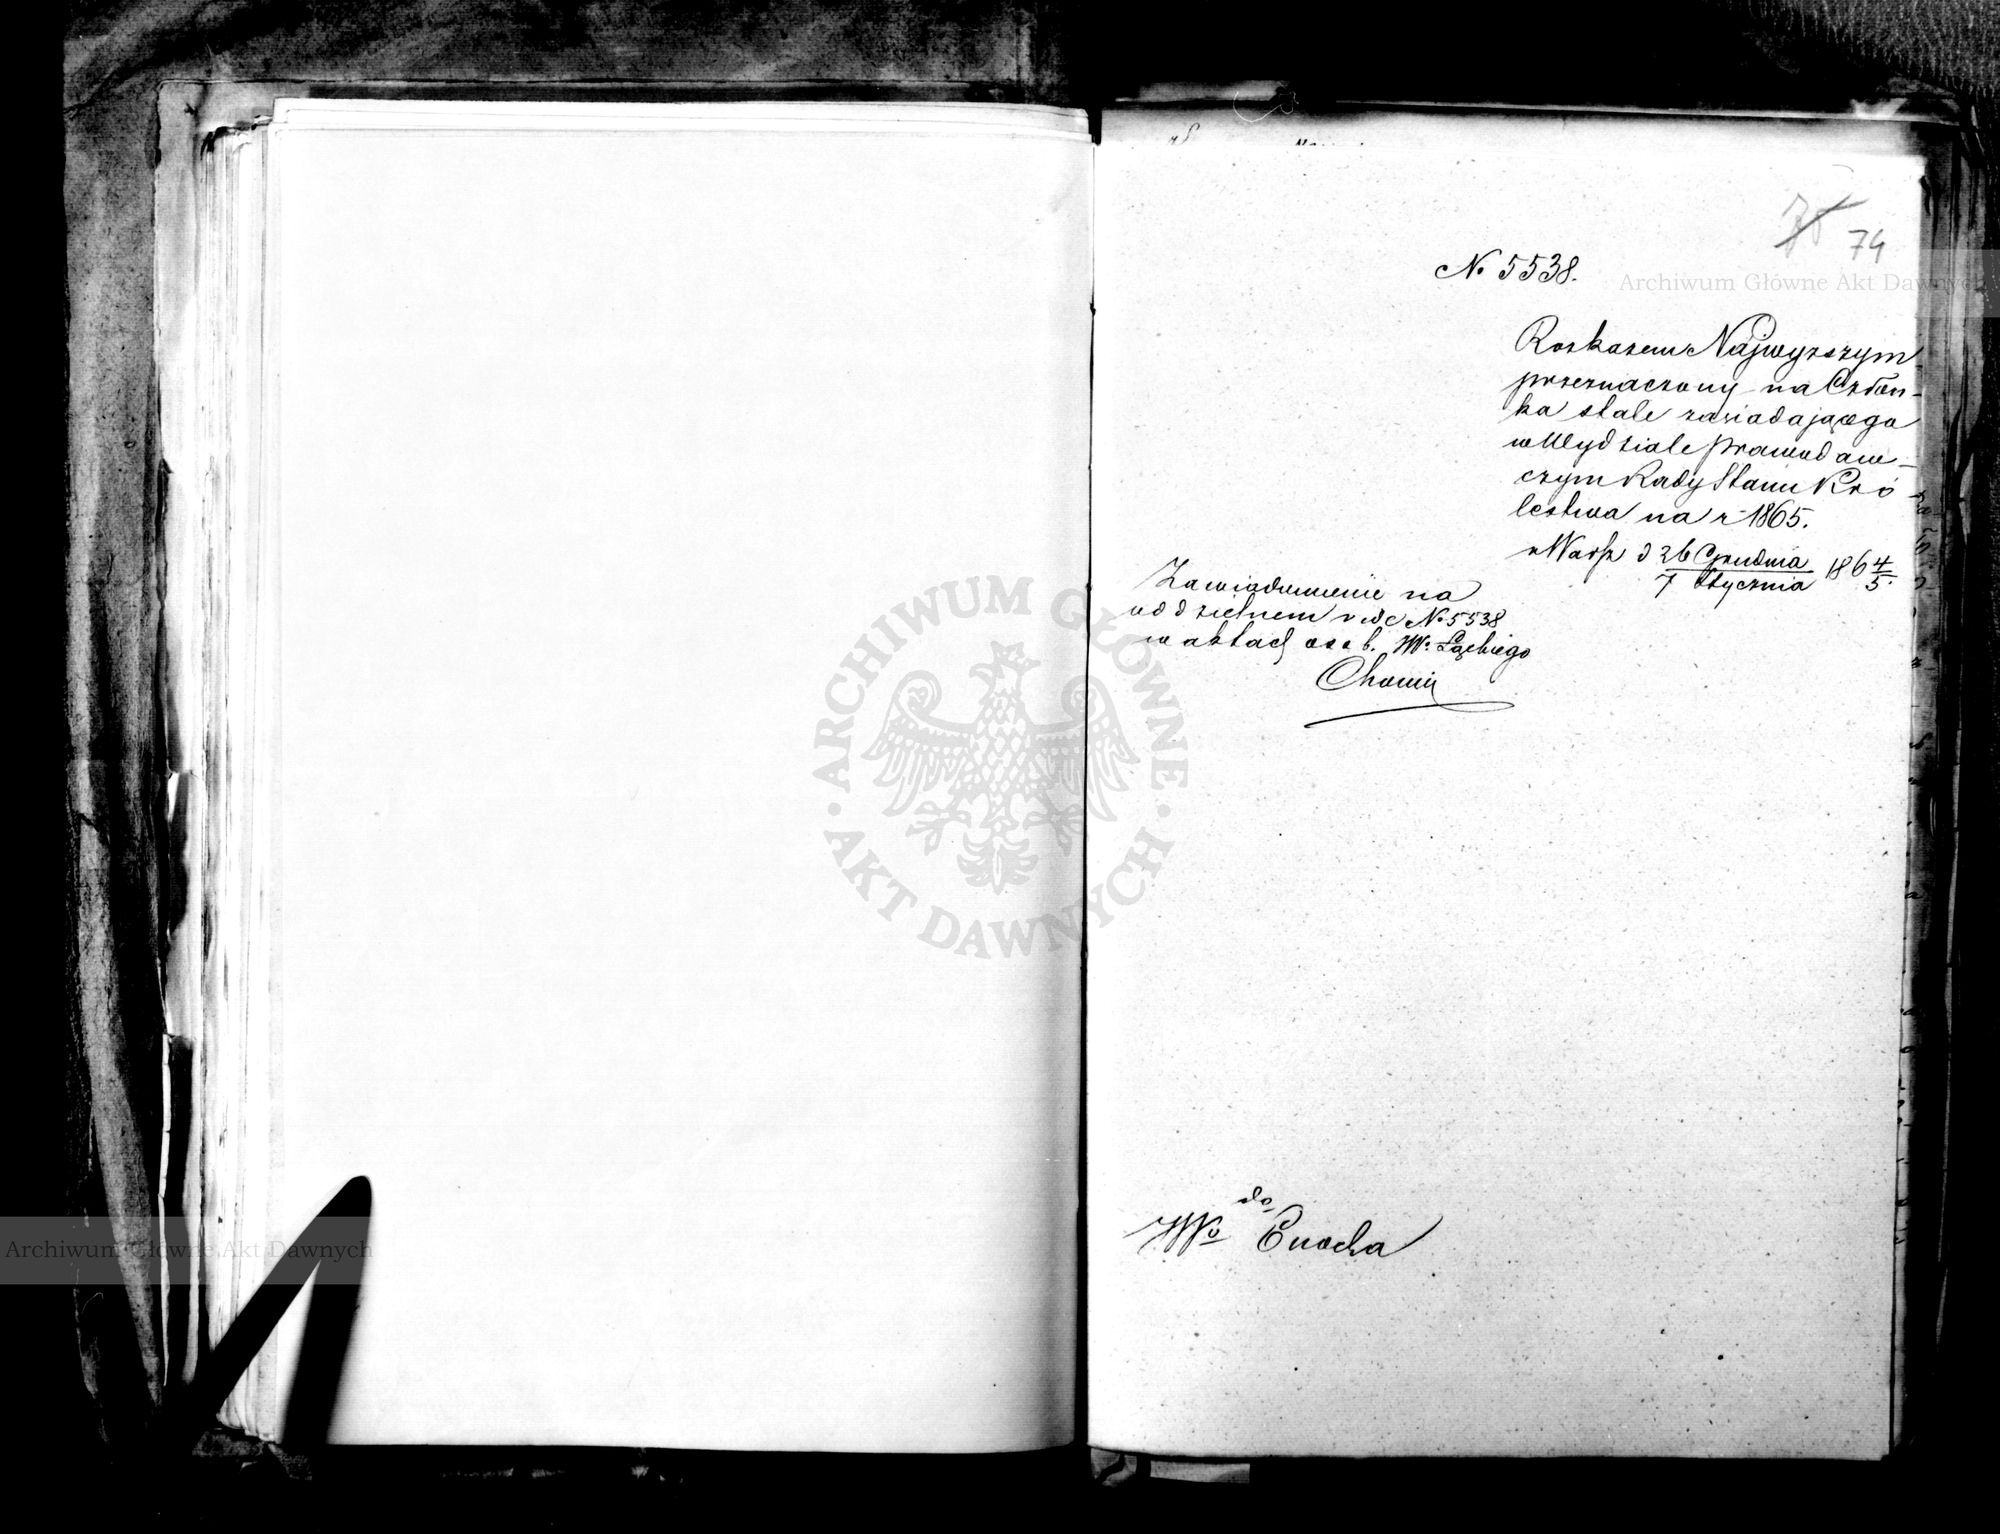 74
№ 5538.
Archiwum Główne Akt Dawnych
Roskazem Najwyższym
przeznaczony na Człon-
ka stale zasiadającego
w Wydziale Prawodaw-
czym Rady Stanu Kró
lestwa na r 1865.
w Warsz d 26 Grudnia 1864
7 Stycznia 5.
Zawiadomienie na
oddzielnem № 5538
w aktach osob. JW. Łąckiego
ARCHIWUM GŁÓWNE
AKT DAWNYCH
do
JWo Enocha
Archiwum Główne Akt Dawnych